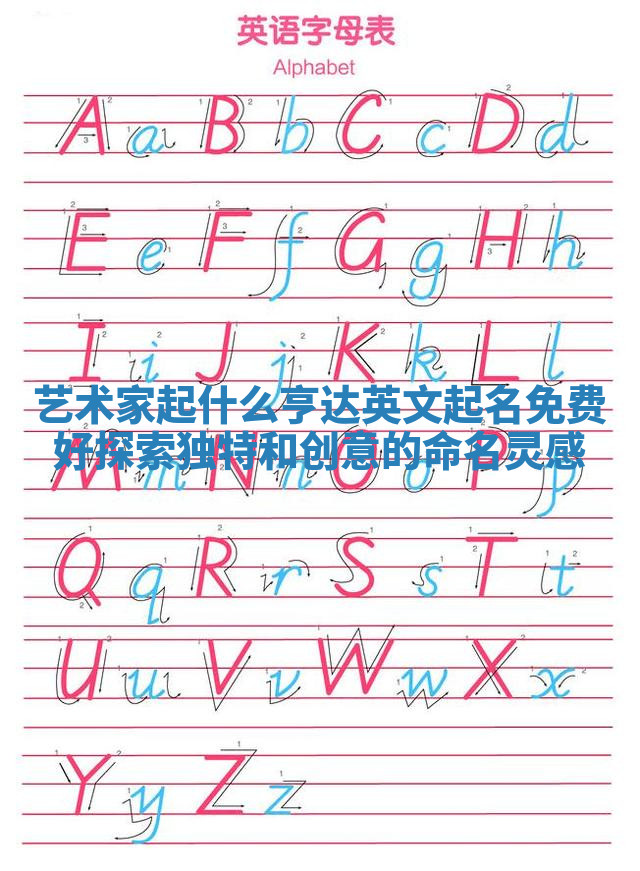 英语字母表
Alphabet
A a B b C c D d
E e F f G g H h
I i J j K k L l
艺术家起什么亨达英文起名免费
好探索独特和创意的命名灵感
M m N n O o P p
Q q R r S s T t
U u V v W w X x
Y y Z z